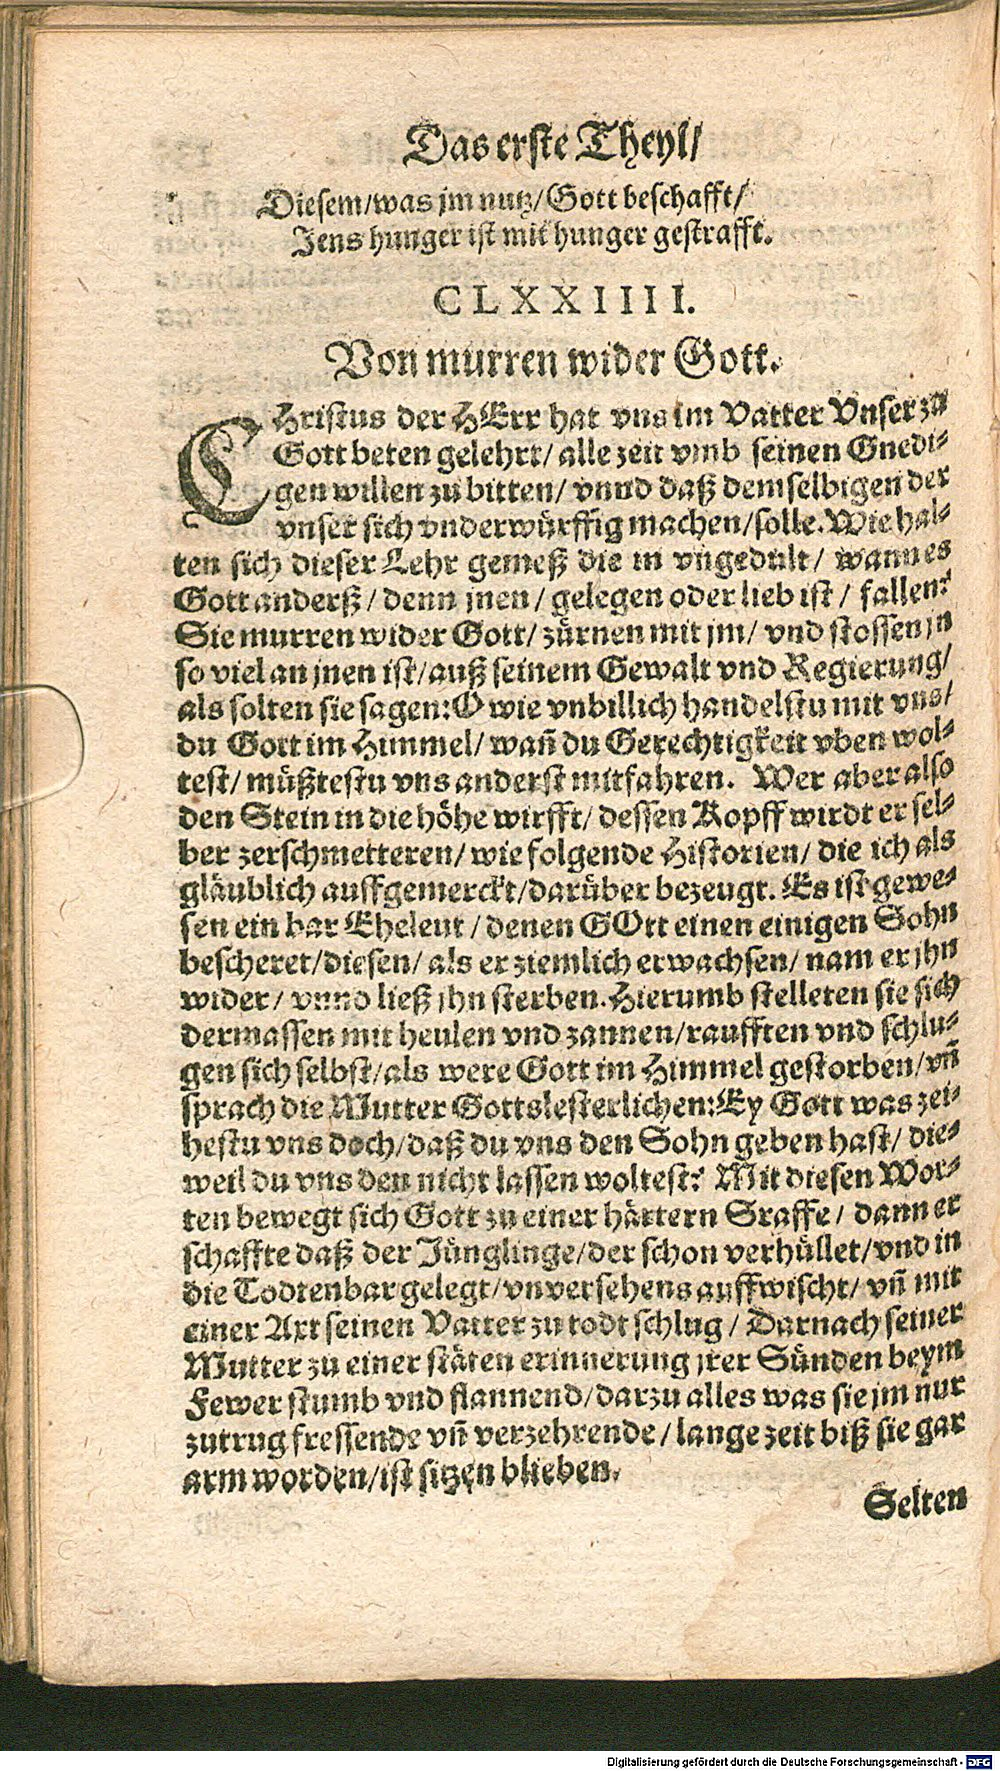 Das erste Theyl/
Diesem/was jm nutz/Gott beschafft/
Jens hunger ist mit hunger gestrafft.
CLXXIIII.
Von murren wider Gott.
CHristus der HErr hat vns im Vatter Vnser zu
Gott beten gelehrt/ alle zeit vmb seinen Gnedi-
gen willen zu bitten/ vnnd daß demselbigen der
vnser sich vnderwürffig machen/solle. Wie hal-
ten sich dieser Lehr gemeß die in vngedult/ wann es
Gott anderß/ denn jnen/ gelegen oder lieb ist/ fallen?
Sie murren wider Gott/ zürnen mit jm/ vnd stossen jn
so viel an jnen ist/auß seinem Gewalt vnd Regierung/
als solten sie sagen:O wie vnbillich handelstu mit vns/
du Gott im Himmel/ wañ du Gerechtigkeit vben wol-
test/ müßtestu vns anderst mitfahren. Wer aber also
den Stein in die höhe wirfft/ dessen Kopff wirdt er sel-
ber zerschmetteren/ wie folgende Historien/ die ich als
gläublich auffgemerckt/darüber bezeugt. Es ist gewe-
sen ein bar Eheleut/ denen GOtt einen einigen Sohn
bescheret/diesen/ als er ziemlich erwachsen/ nam er jhn
wider/ vnnd ließ jhn sterben.Hierumb stelleten sie sich
dermassen mit heulen vnd zannen/raufften vnd schlu-
gen sich selbst/als were Gott im Himmel gestorben/vñ
sprach die Mutter Gottslesterlichen:Ey Gott was zei-
hestu vns doch/daß du vns den Sohn geben hast/ die-
weil du vns den nicht lassen woltest? Mit diesen Wor-
ten bewegt sich Gott zu einer härtern Sraffe/ dann er
schaffte daß der Jünglinge/der schon verhüllet/vnd in
die Todtenbar gelegt/vnversehens auffwischt/ vñ mit
einer Axt seinen Vatter zu todt schlug/ Darnach seiner
Mutter zu einer stäten erinnerung jrer Sünden beym
Fewer stumb vnd flannend/darzu alles was sie jm nur
zutrug fressende vñ verzehrende/ lange zeit biß sie gar
arm worden/ist sitzen blieben.
Selten
Digitalisierung gefördert durch die Deutsche Forschungsgemeinschaft - DFG